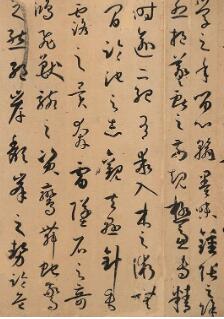 學之年留心翰墨味鍾張之餘
烈挹羲獻之前規極慮專精
時逾二紀有乖入木之術無
間臨池之志觀夫懸針垂
露之異奔雷墜石之奇
鴻飛獸駭之資鸞舞蛇驚
之態絕岸頹峯之勢臨危